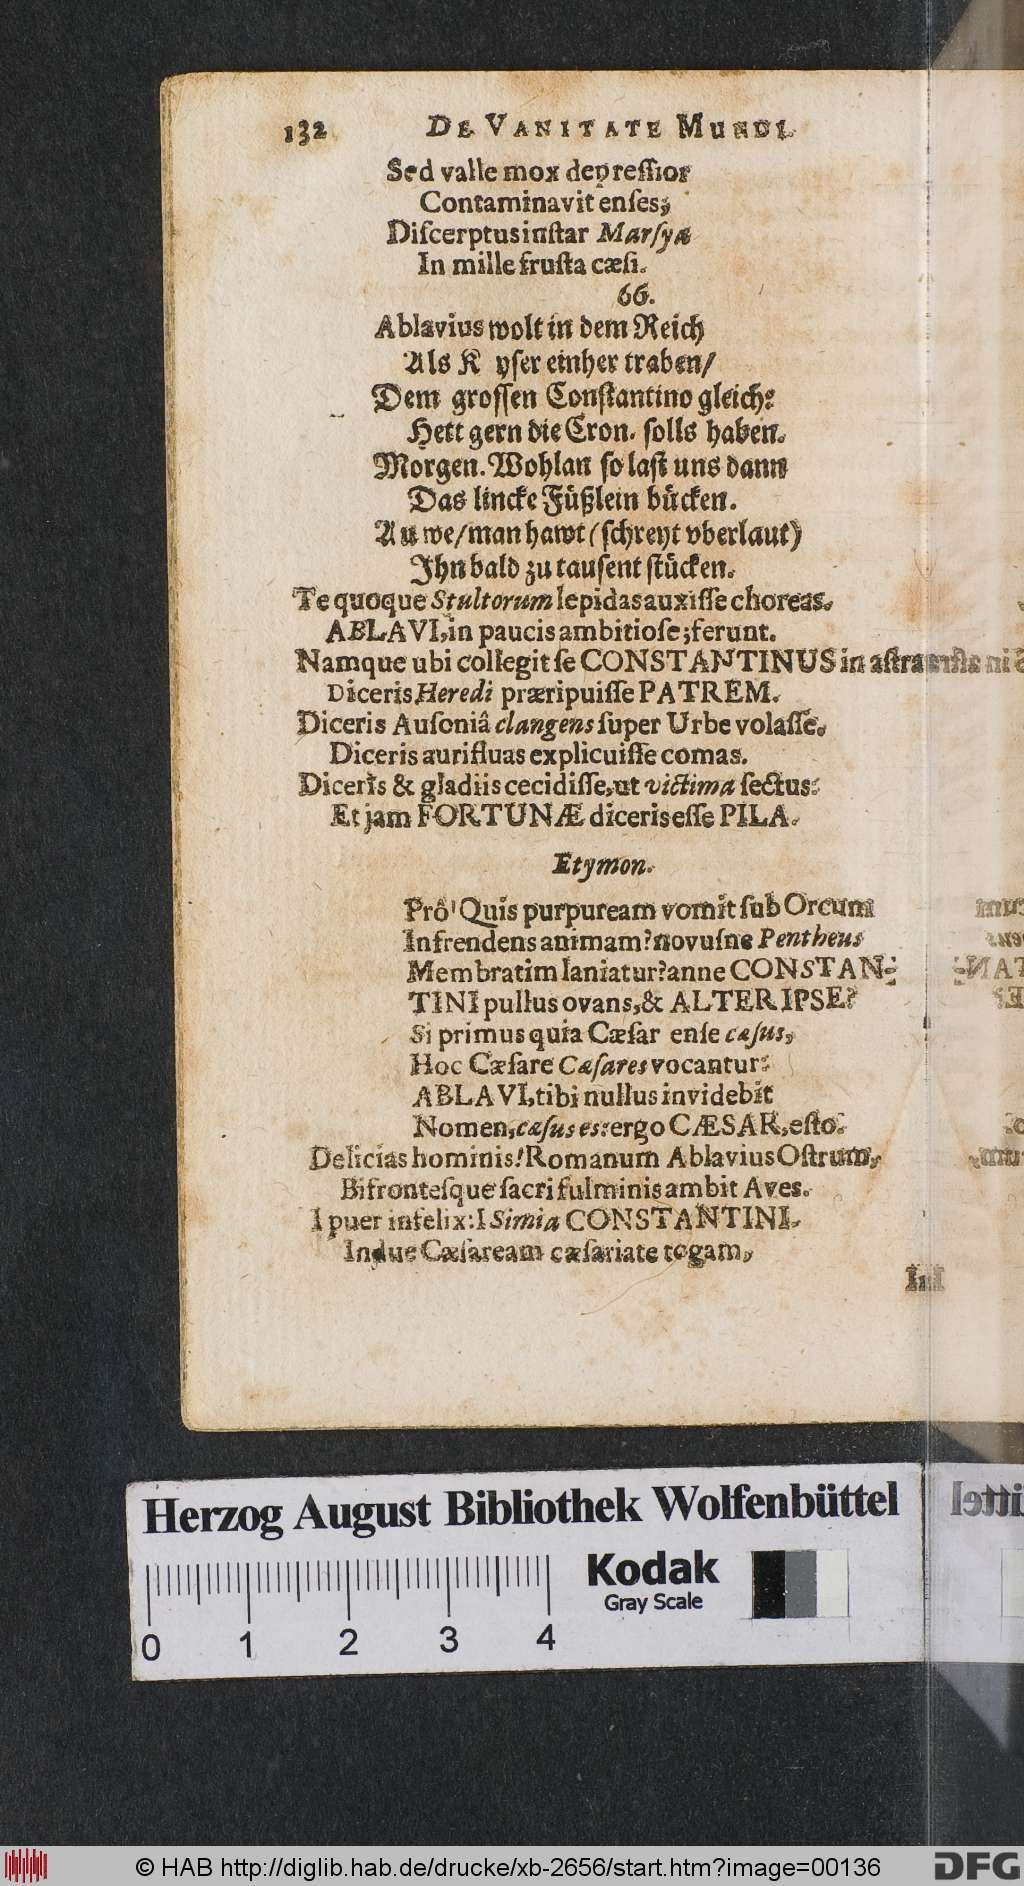 132 DE VANITATE MUNDI.
Sed valle mox depreſſior
Contaminavit enſes;
Diſcerptus inſtar Marſyæ
In mille fruſta cæſi.
66.
Ablavius wolt in dem Reich
Als K yſer einher traben/
Dem groſſen Conſtantino gleich:
Hett gern die Cron. ſolls haben.
Morgen. Wohlan ſo laſt uns dann
Das lincke Füßlein bücken.
Au we/ man hawt (ſchreyt vberlaut)
Ihn bald zu tauſent ſtücken.
Te quoque Stultorum lepidas auxiſſe choreas.
ABLAVI, in paucis ambitioſe; ferunt.
Namque ubi collegit ſe CONSTANTINUS in aſtra
Diceris Heredi præripuiſſe PATREM.
Diceris Auſoniâ clangens ſuper Urbe volaſſe.
Diceris aurifluas explicuiſſe comas.
Diceris & gladiis cecidiſſe, ut victima ſectus:
Et jam FORTUNÆ diceris eſſe PILA.
Etymon.
Prô! Quis purpuream vomit ſub Orcum
Infrendens animam? novuſne Pentheus
Membratim laniatur? anne CONSTAN-
TINI pullus ovans, & ALTER IPSE?
Si primus quia Cæſar enſe cæſus,
Hoc Cæſare Cæſares vocantur:
ABLAVI, tibi nullus invidebit
Nomen, cæſus es: ergo CÆSAR, eſto.
Delicias hominis! Romanum Ablavius Oſtrum,
Bifronteſque ſacri fulminis ambit Aves.
I puer infelix: I Simia CONSTANTINI.
Indue Cæſaream cæſariate togam,
Herzog August Bibliothek Wolfenbüttel
Kodak
Gray Scale
0 1 2 3 4
© HAB http://diglib.hab.de/drucke/xb-2656/start.htm?image=00136
DFG